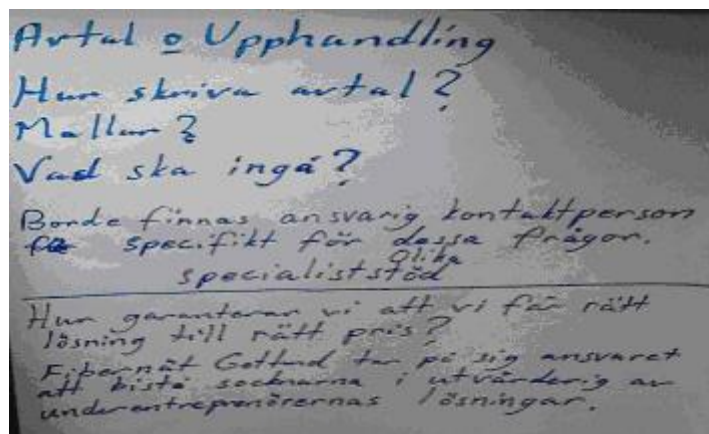 Avtal o Upphandling
Hur skriva avtal?
Mallar?
Vad ska ingå?
Borde finnas ansvarig kontaktperson
specifikt för dessa frågor.
Olika
specialiststöd
Hur garanterar vi att vi får rätt
lösning till rätt pris?
Fibernät Gotland tar på sig ansvaret
att bistå socknarna i utvärderig av
underentreprenörernas lösningar.